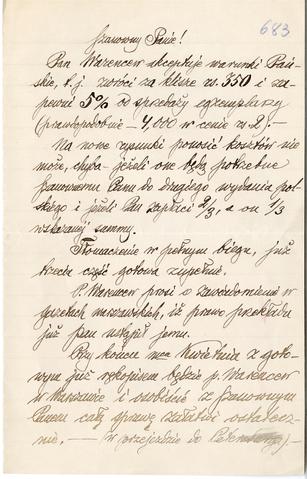 683
Szanowny Panie!
Pan Warencew akceptuje warunki Pań-
skie, t. j. zwróci za klisze rs. 350 i za-
pewni 5% od sprzedaży egzemplarzy
(prawdopodobnie – 4,000 w cenie rs. 2). –
Na nowe rysunki ponosić kosztów nie
może, chyba – jeżeli one będą potrzebne
Szanownemu Panu do drugiego wydania pol-
skiego i jeżeli Pan zapłaci 2/3, a on 1/3
wskazanej sumy.
Tłomaczenie w pełnym biegu, już
trzecia część gotowa zupełnie.
P. Warencew prosi o zawiadomienie w
gazetach warszawskich, iż prawo przekładu
już Pan ustąpił jemu.
Przy końcu mca Kwietnia z goto-
wym już rękopisem będzie p. Warencew
w Warszawie i osobiście z Szanownym
Panem całą sprawę załatwi ostatecz-
nie, – (w przejeździe do Petersburga) –